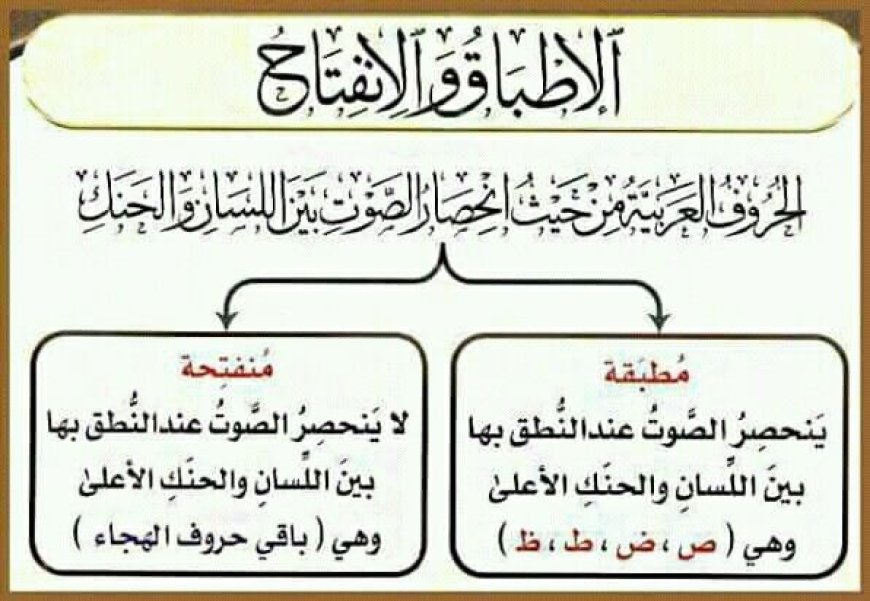 الإِطْبَاقُ وَالِانْفِتَاحُ
الحُرُوفُ العَرَبِيَّةُ مِنْ حَيْثُ انْحِصَارُ الصَّوْتِ بَيْنَ اللسَانِ وَالحَنَكِ
مُطبَقة
يَنحصِرُ الصَّوتُ عند النُّطق بها
بينَ اللِّسانِ والحنَكِ الأعلىٰ
وهي ( ص ، ض ، ط ، ظ )
مُنفتِحة
لا يَنحصِرُ الصَّوتُ عند النُّطق بها
بينَ اللِّسانِ والحنَكِ الأعلىٰ
وهي ( باقي حروف الهجاء )